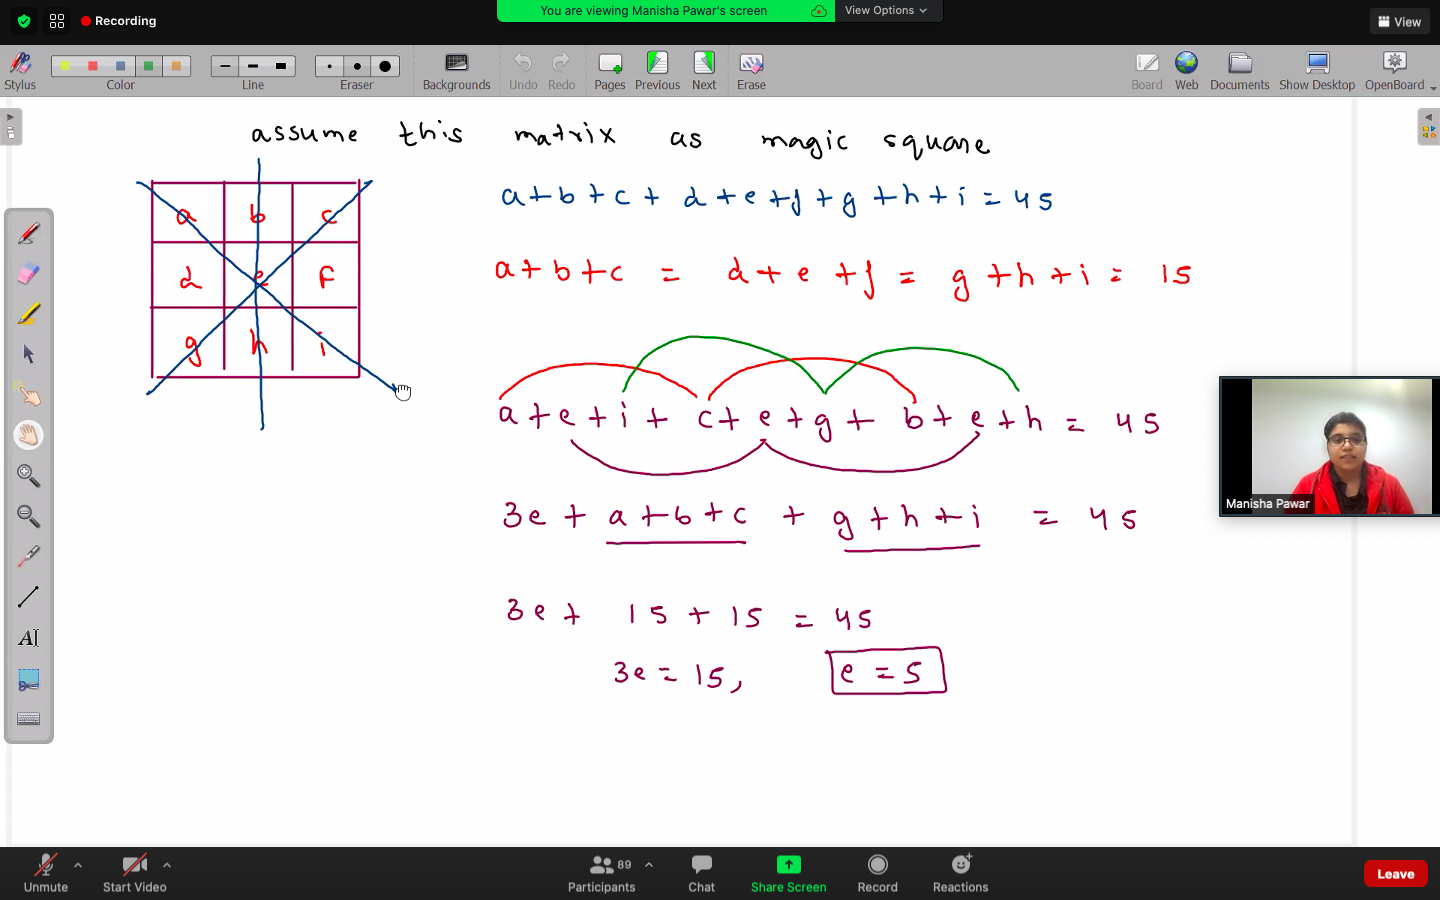 You are viewing Manisha Pawar's screen
View Options
Recording
View
Stylus
Color
Line
Eraser
Backgrounds
Undo
Redo
Pages
Previous
Next
Erase
Board
Web
Documents
Show Desktop
OpenBoard
assume this matrix as magic square
a b c
d e f
g h i
a + b + c + d + e + f + g + h + i = 45
a + b + c = d + e + f = g + h + i = 15
a + e + i + c + e + g + b + e + h = 45
3e + a + b + c + g + h + i = 45
3e + 15 + 15 = 45
3e = 15, e = 5
AI
Manisha Pawar
Unmute
Start Video
89
Participants
Chat
Share Screen
Record
Reactions
Leave